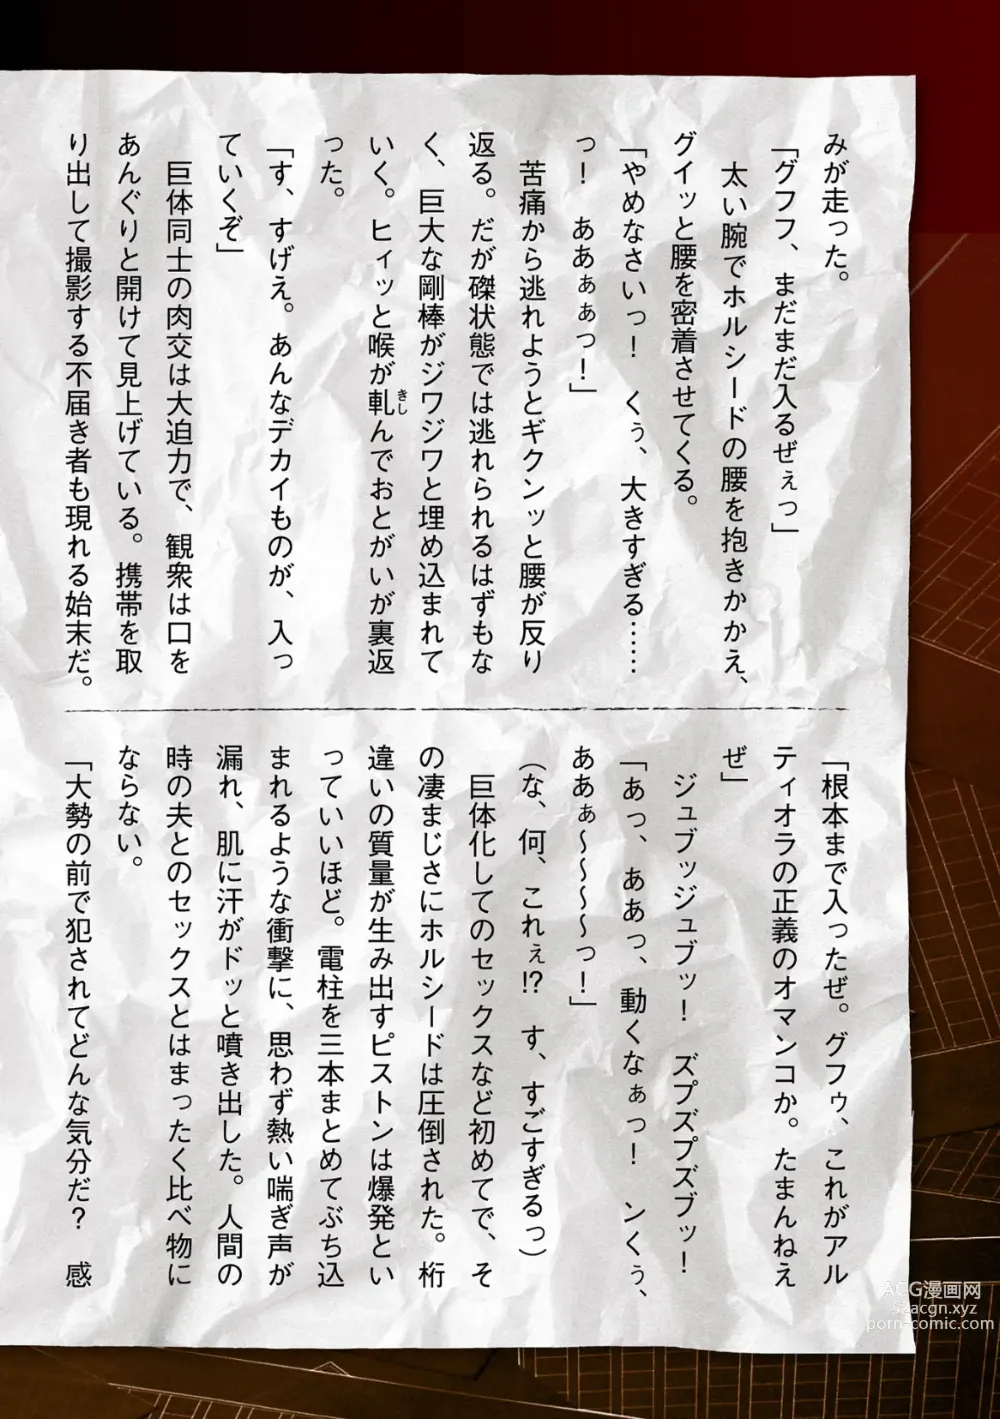 みが走った。
「グフフ、まだまだ入るぜぇっ」
太い腕でホルシードの腰を抱きかかえ、
グイッと腰を密着させてくる。
「やめなさいっ！　くぅ、大きすぎる……
っ！　ああぁぁっ！」
苦痛から逃れようとギクンッと腰が反り
返る。だが磔状態では逃れられるはずもな
く、巨大な剛棒がジワジワと埋め込まれて
いく。ヒィッと喉が軋んでおとがいが裏返
きし
った。
「す、すげえ。あんなデカイものが、入っ
ていくぞ」
巨体同士の肉交は大迫力で、観衆は口を
あんぐりと開けて見上げている。携帯を取
り出して撮影する不届き者も現れる始末だ。
「根本まで入ったぜ。グフゥ、これがアル
ティオラの正義のオマンコか。たまんねえ
ぜ」
ジュブッジュブッ！　ズプズプズブッ！
「あっ、ああっ、動くなぁっ！　ンくぅ、
ああぁ～～～～っ！」
（な、何、これぇ!?　す、すごすぎるっ）
巨体化してのセックスなど初めてで、そ
の凄まじさにホルシードは圧倒された。桁
違いの質量が生み出すピストンは爆発とい
っていいほど。電柱を三本まとめてぶち込
まれるような衝撃に、思わず熱い喘ぎ声が
漏れ、肌に汗がドッと噴き出した。人間の
時の夫とのセックスとはまったく比べ物に
ならない。
「大勢の前で犯されてどんな気分だ？　感
ACG漫画网
52acgn.xyz
porn-comic.com